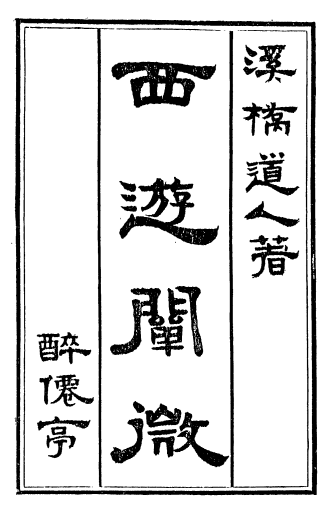 溪橋道人著
西遊闡微
醉僊亭